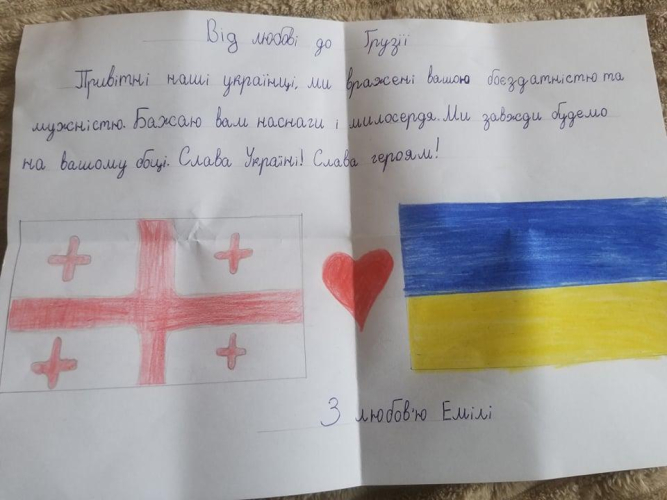 Від любові до Грузії
Привітні наші українці, ми вражені вашою боєздатністю та
мужністю. Бажаю вам наснаги і милосердя. Ми завжди будемо
на вашому обці. Слава Україні! Слава героям!
З любов'ю Емілі